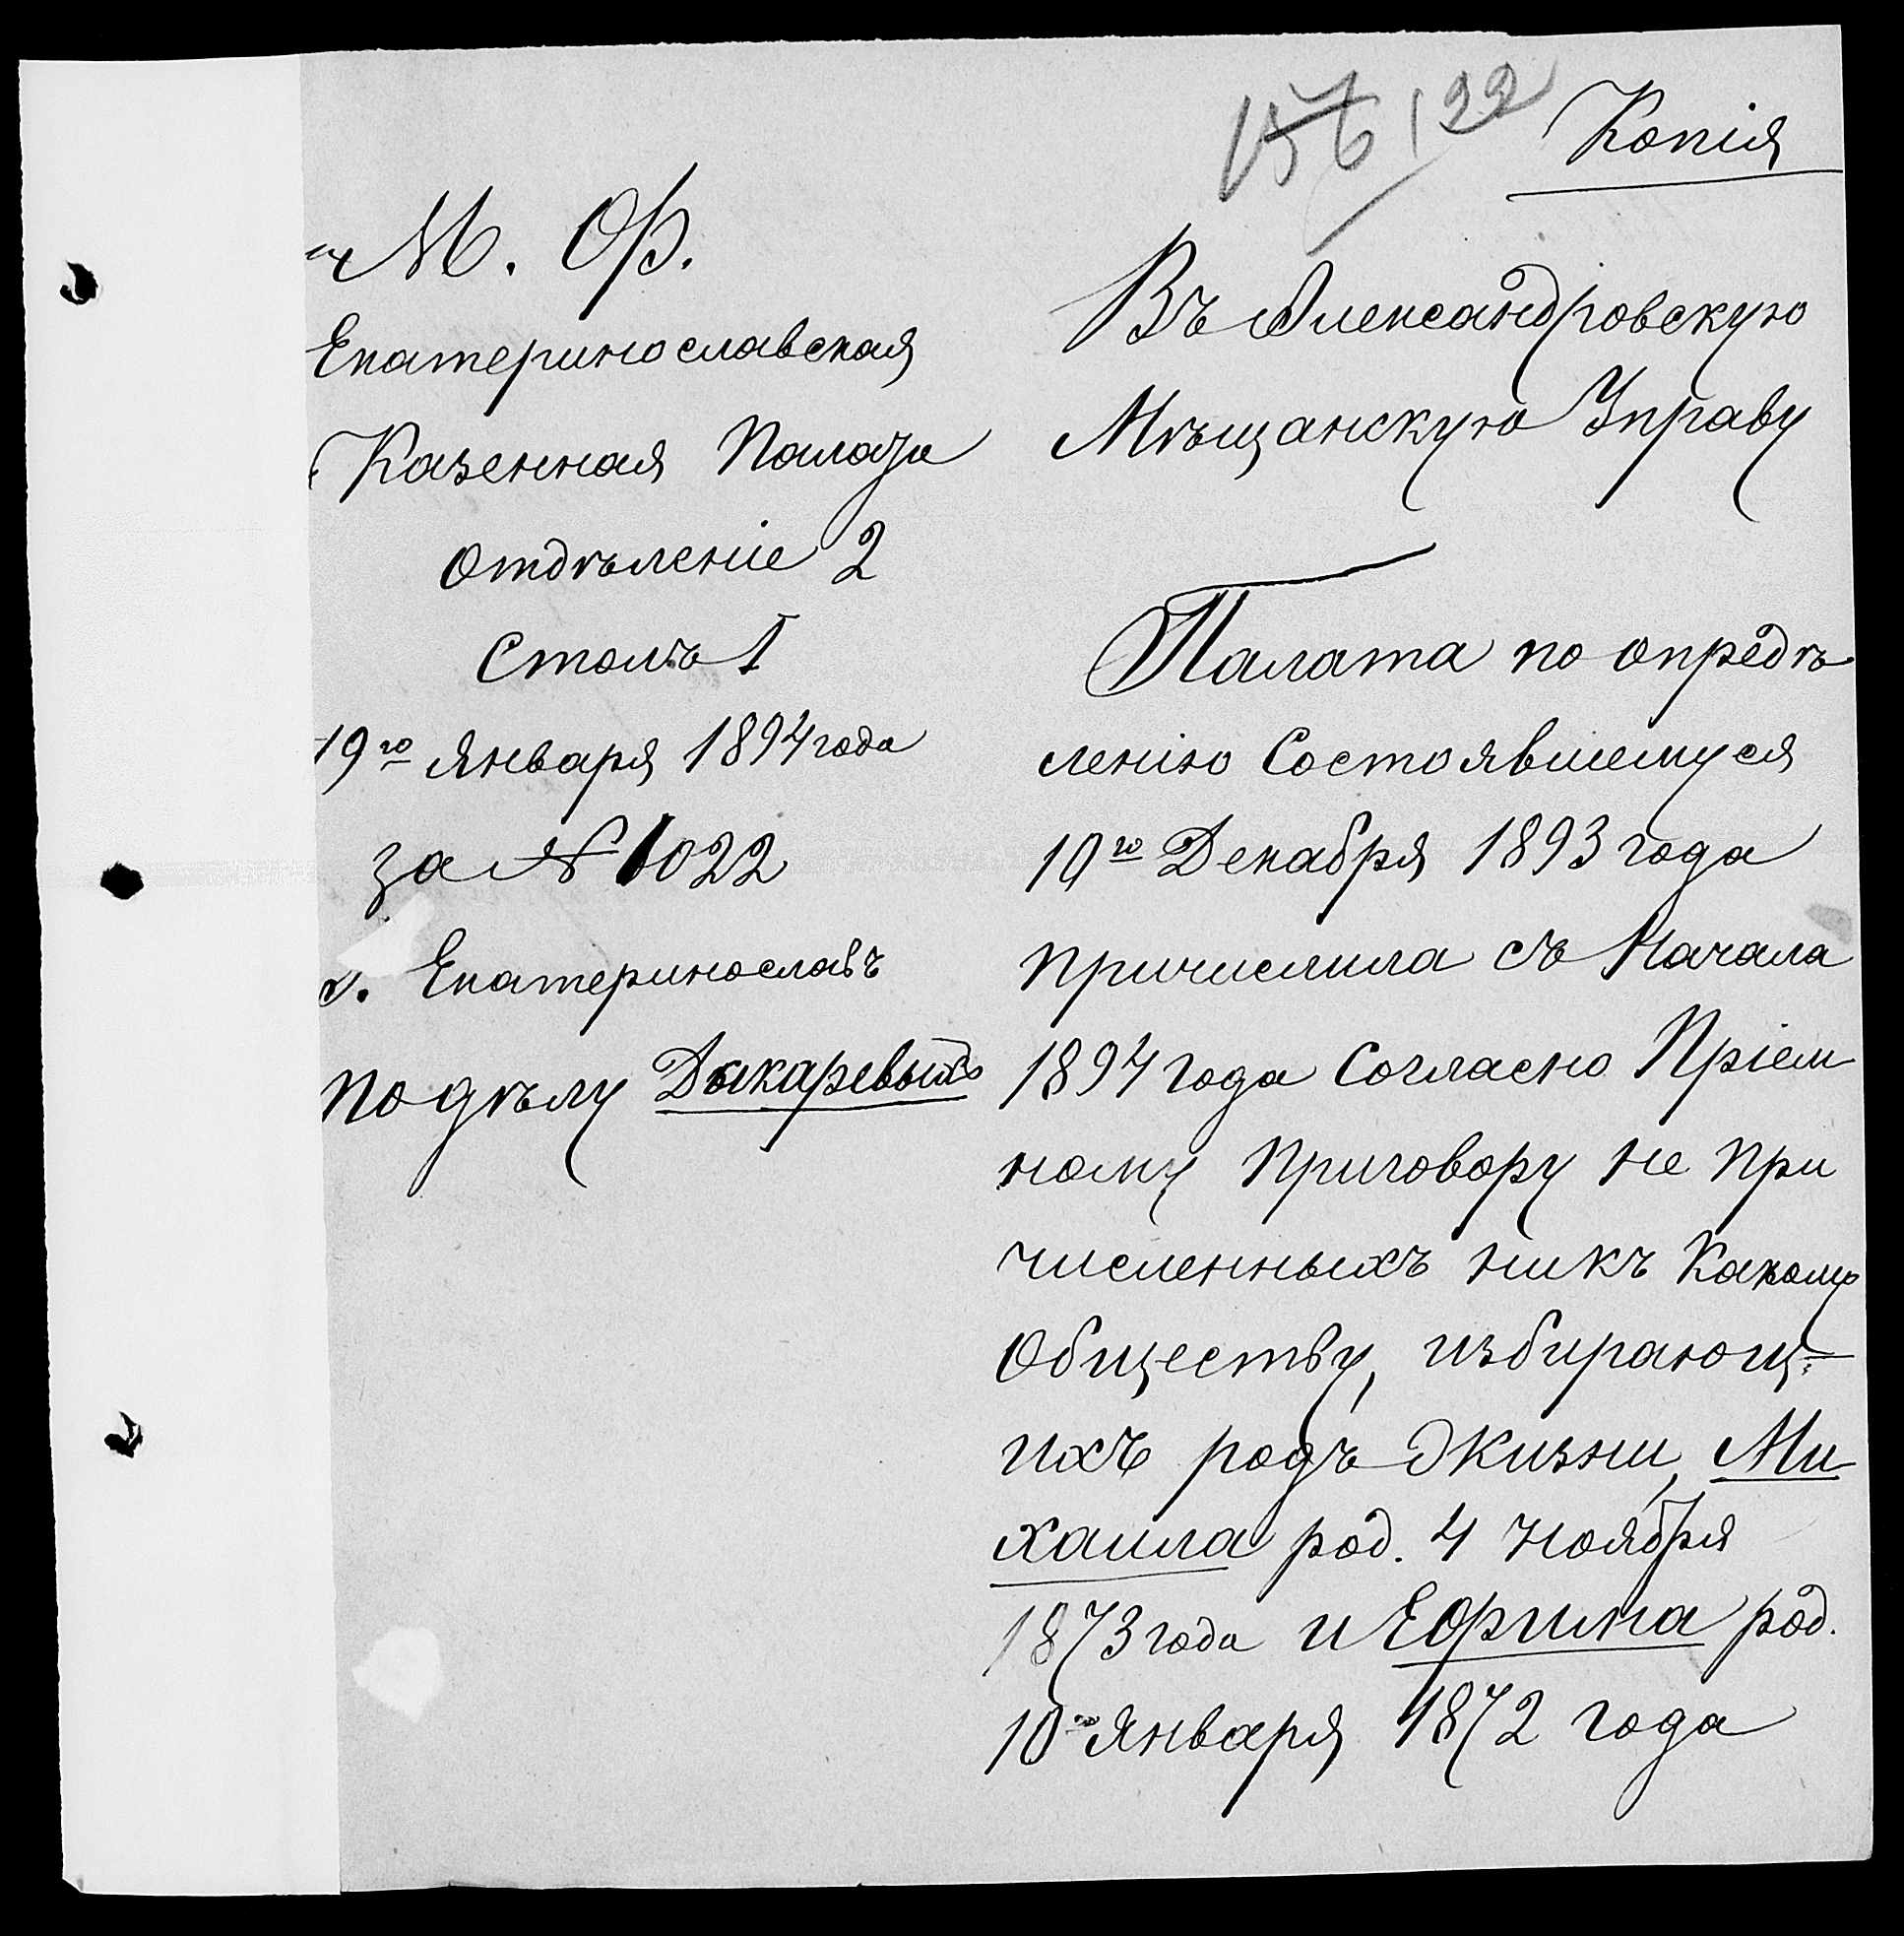 156 122
Копія
М. Ф.
Екатеринославская
Казенная Палата
Отдѣленіе 2
Столъ 1
19го Января 1894 года
за № 1022
г. Екатеринославъ
по дѣлу Дыкаревыхъ
Въ Александровскую
Мѣщанскую Управу
Палата по опредѣ
ленію Состоявшемуся
10го Декабря 1893 года
причислила съ Начала
1894 года Согласно Пріем
ному приговору не при
численныхъ никъ Какому
Обществу, избирающ-
ихъ родъ Жизни, Ми
хаила род. 4 Ноября
1873 года и Ефима род.
10го Января 1872 года